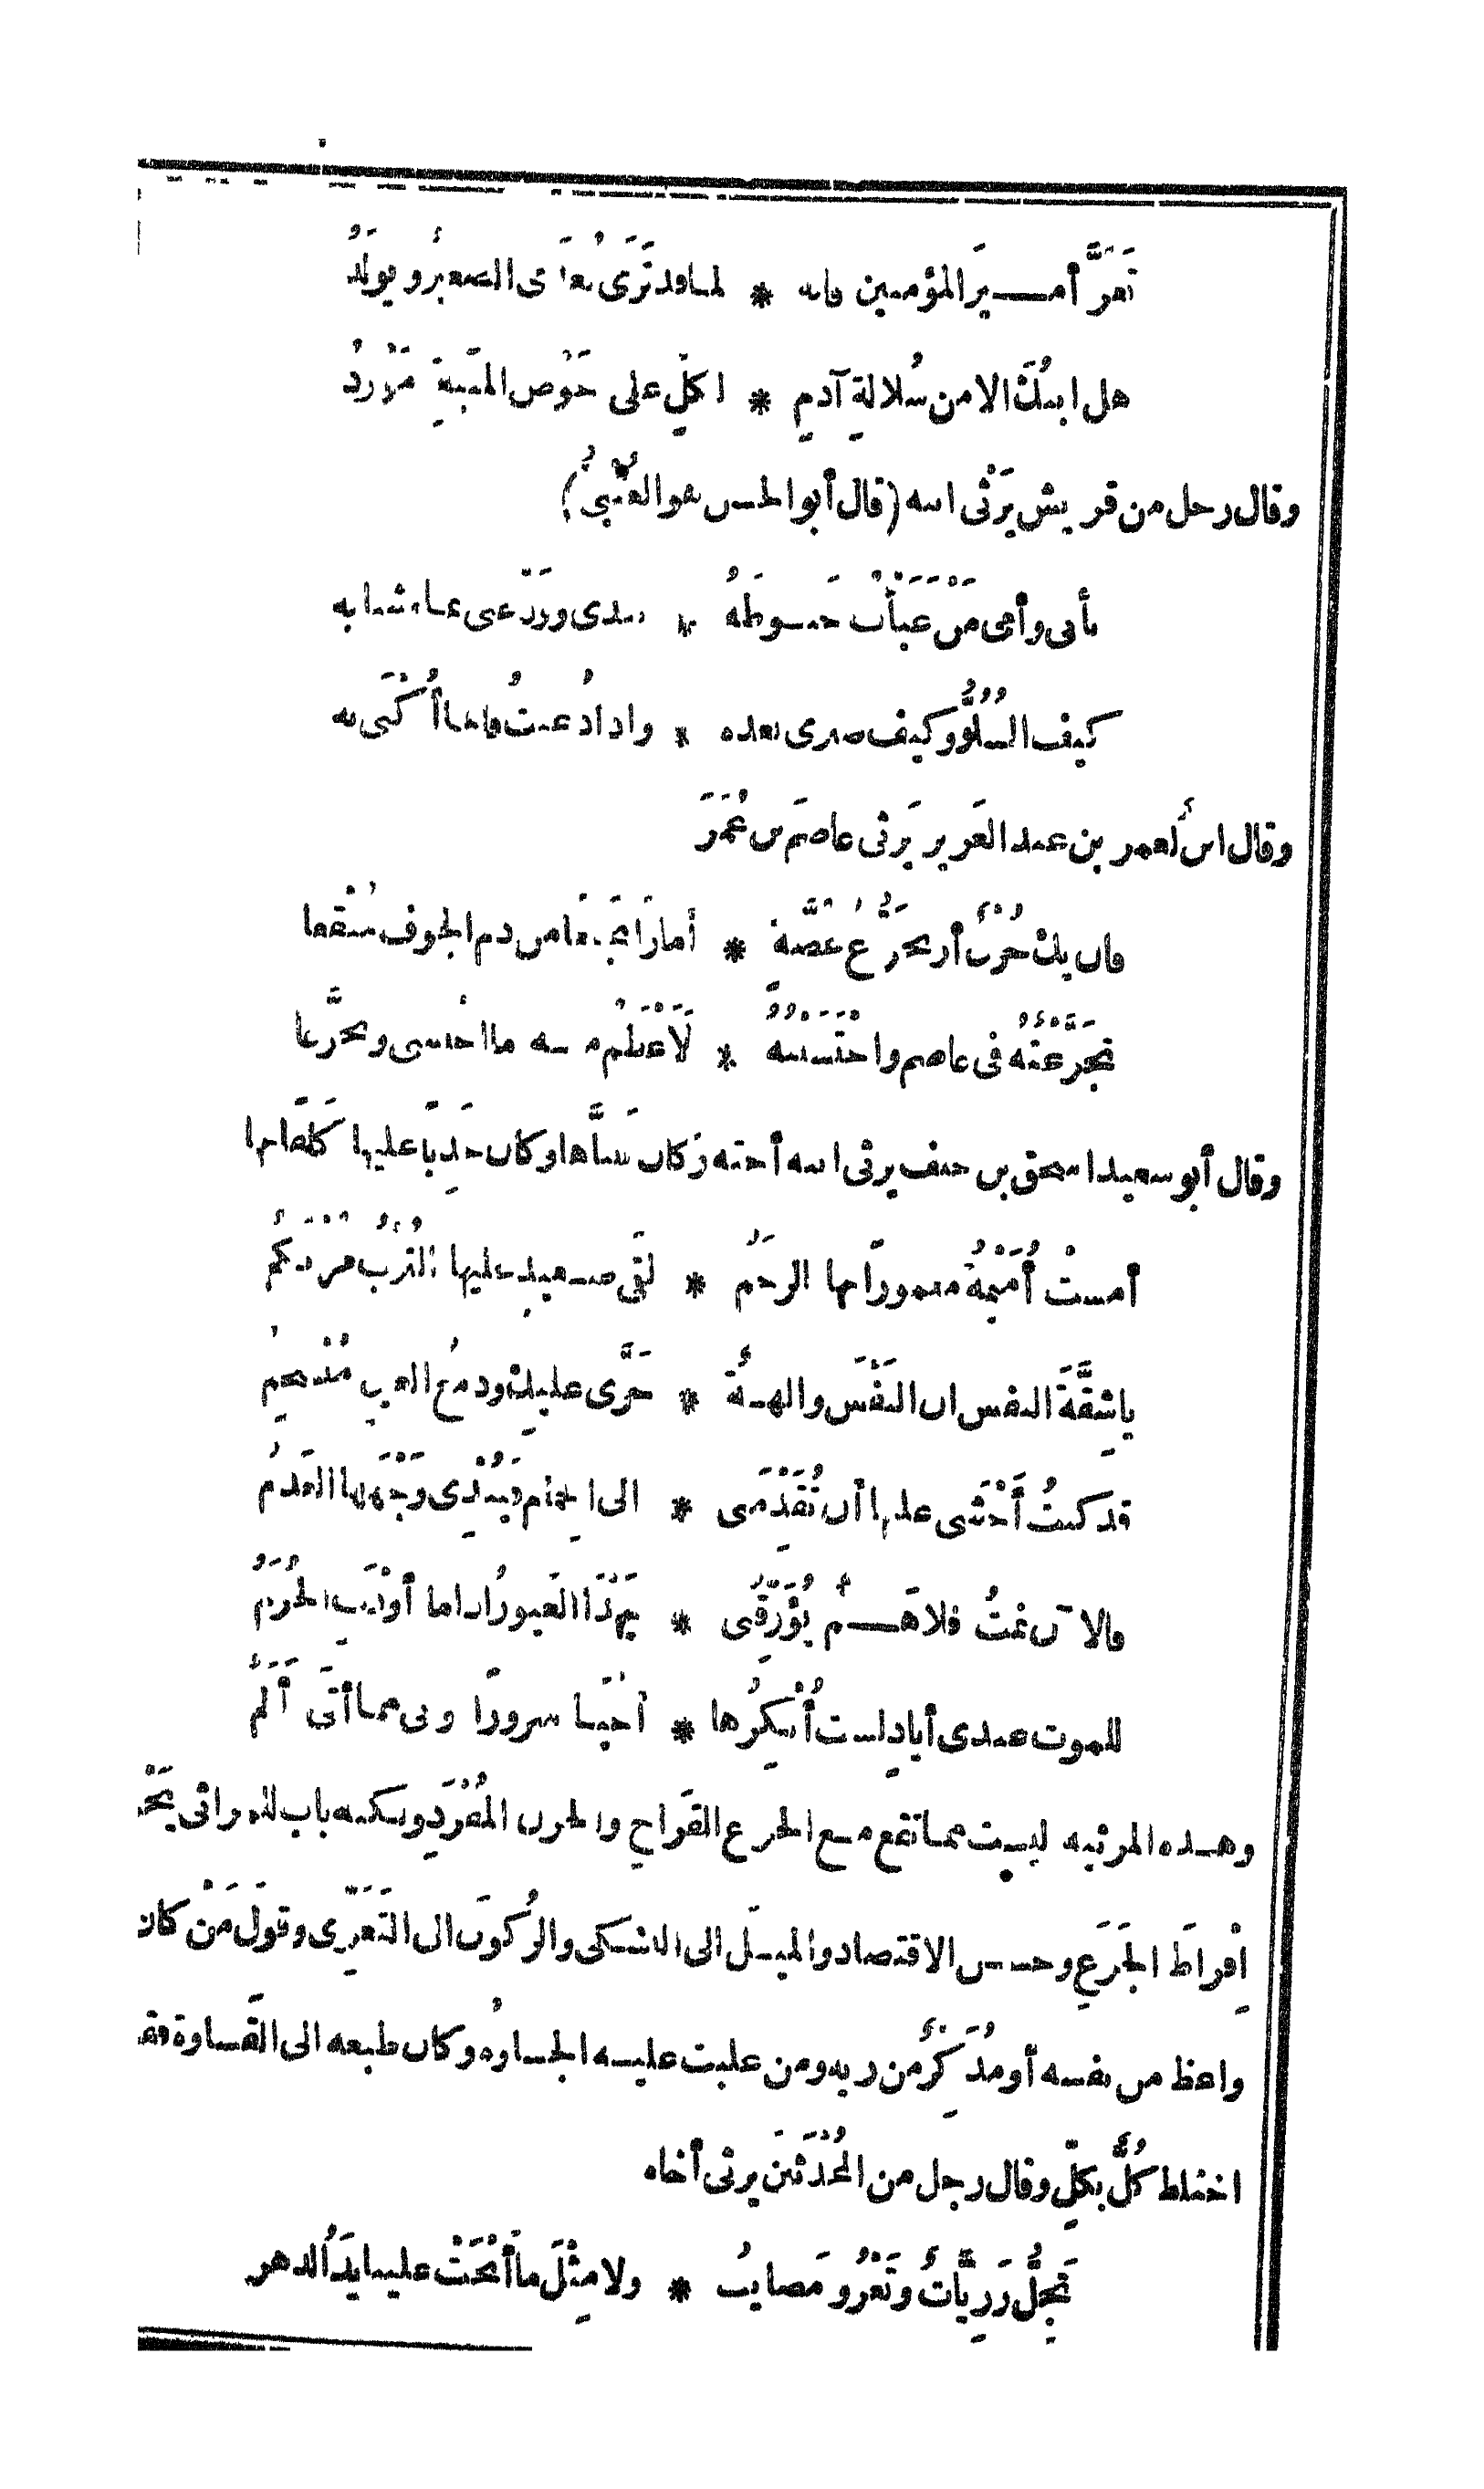 تَعَزَّ أمير المؤمنين فانه * لما قد تَرَى يُغذَى الصغيرُ ويولَدُ
هل ابنُكَ الا من سُلالةِ آدمٍ * لكلٍّ على حَوْضِ المنيّةِ مَوْرِدُ
وقال رجل من قريش يَرْثى ابنه (قال أبو الحسن هو العُتْبِىُّ)
بأبى وأمى مَنْ عَبَأْتُ حَنوطَهُ * بيدى وودّعنى بماء شبابه
كيف السُلُوُّ وكيف صبرى بعده * واذا دُعيتُ فانما أُكْنَى به
وقال ابنٌ لعمر بن عبد العزيز يَرثى عاصمَ بن عُمَرَ
فان يك حُزْنٌ أو تَجَرُّعُ غُصَّةٍ * أمارَا نجيعًا من دم الجوف مُنْقَعا
تجَرَّعْتُه فى عاصم واحْتَسَيْتُهُ * لَأَعْظَمُ منه ما احتسى وتجرَّعا
وقال أبو سعيد اسحق بن خلف يرثى ابنة أخته وكان تبنَّاها وكان حَدِبًا عليها كلِفًا بها
أمستْ أُمَيْمَةُ معمورًا بها الرجَمُ * لَقَى صعيدٍ عليها التُرْبُ مُرْتَكِمُ
يا شِقَّةَ النفس ان النَفْسَ والهةٌ * حَرَّى عليكِ ودمعُ العينِ مُنْسجمُ
قد كنتُ أَخْشَى عليها أن تُقَدِّمَنى * الى الحِمامِ فيُبْدِى وَجْهَها العَدَمُ
فالآن نمتُ فلا هَمٌّ يُؤَرِّقُنى * يَهْدَا الغيورُ اذا ما أوْدَتِ الحُرَمُ
للموت عندى أيادٍ لست أُنْكِرُها * أَحْيَا سرورًا وبى مما أتَى أَلَمُ
وهذه المرثية ليست مما تقع مع الجزع القَراحِ والحزن المُفْرَدِ ولكنه باب للمراثى يَجْ
إفراطَ الجَزَعِ وحسن الاقتصاد والميلَ الى التشكى والرُكونَ الى التَعَزِّى وقولَ مَنْ كان
واعظ من نفسه أو مُذَكِّرٌ من ربه ومن غلبت عليه الجساوةُ وكان طبعه الى القَساوة فقد
اختلط كُلٌّ بكلٍّ وقال رجل من المُحْدَثينَ يرثى أخاه
تَجِلُّ رَزِيَّاتٌ وتَعْرُو مَصايبُ * ولا مِثْلَ ما أَنْحَتْ علينا يَدُ الدهر